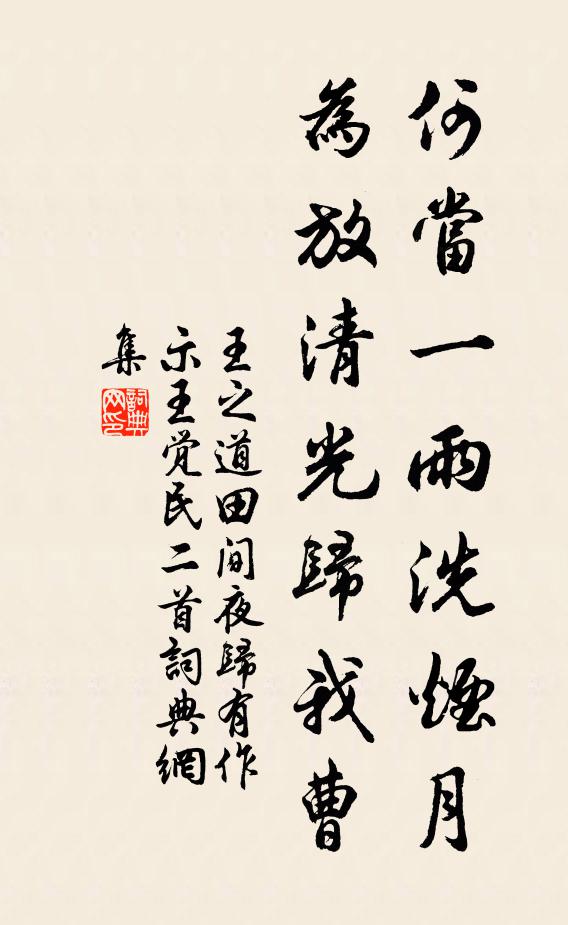 何當一雨洗煙月
為放清光歸我曹
王之道田間夜歸有作
示王覺民二首詞典網
集
詞典
网印